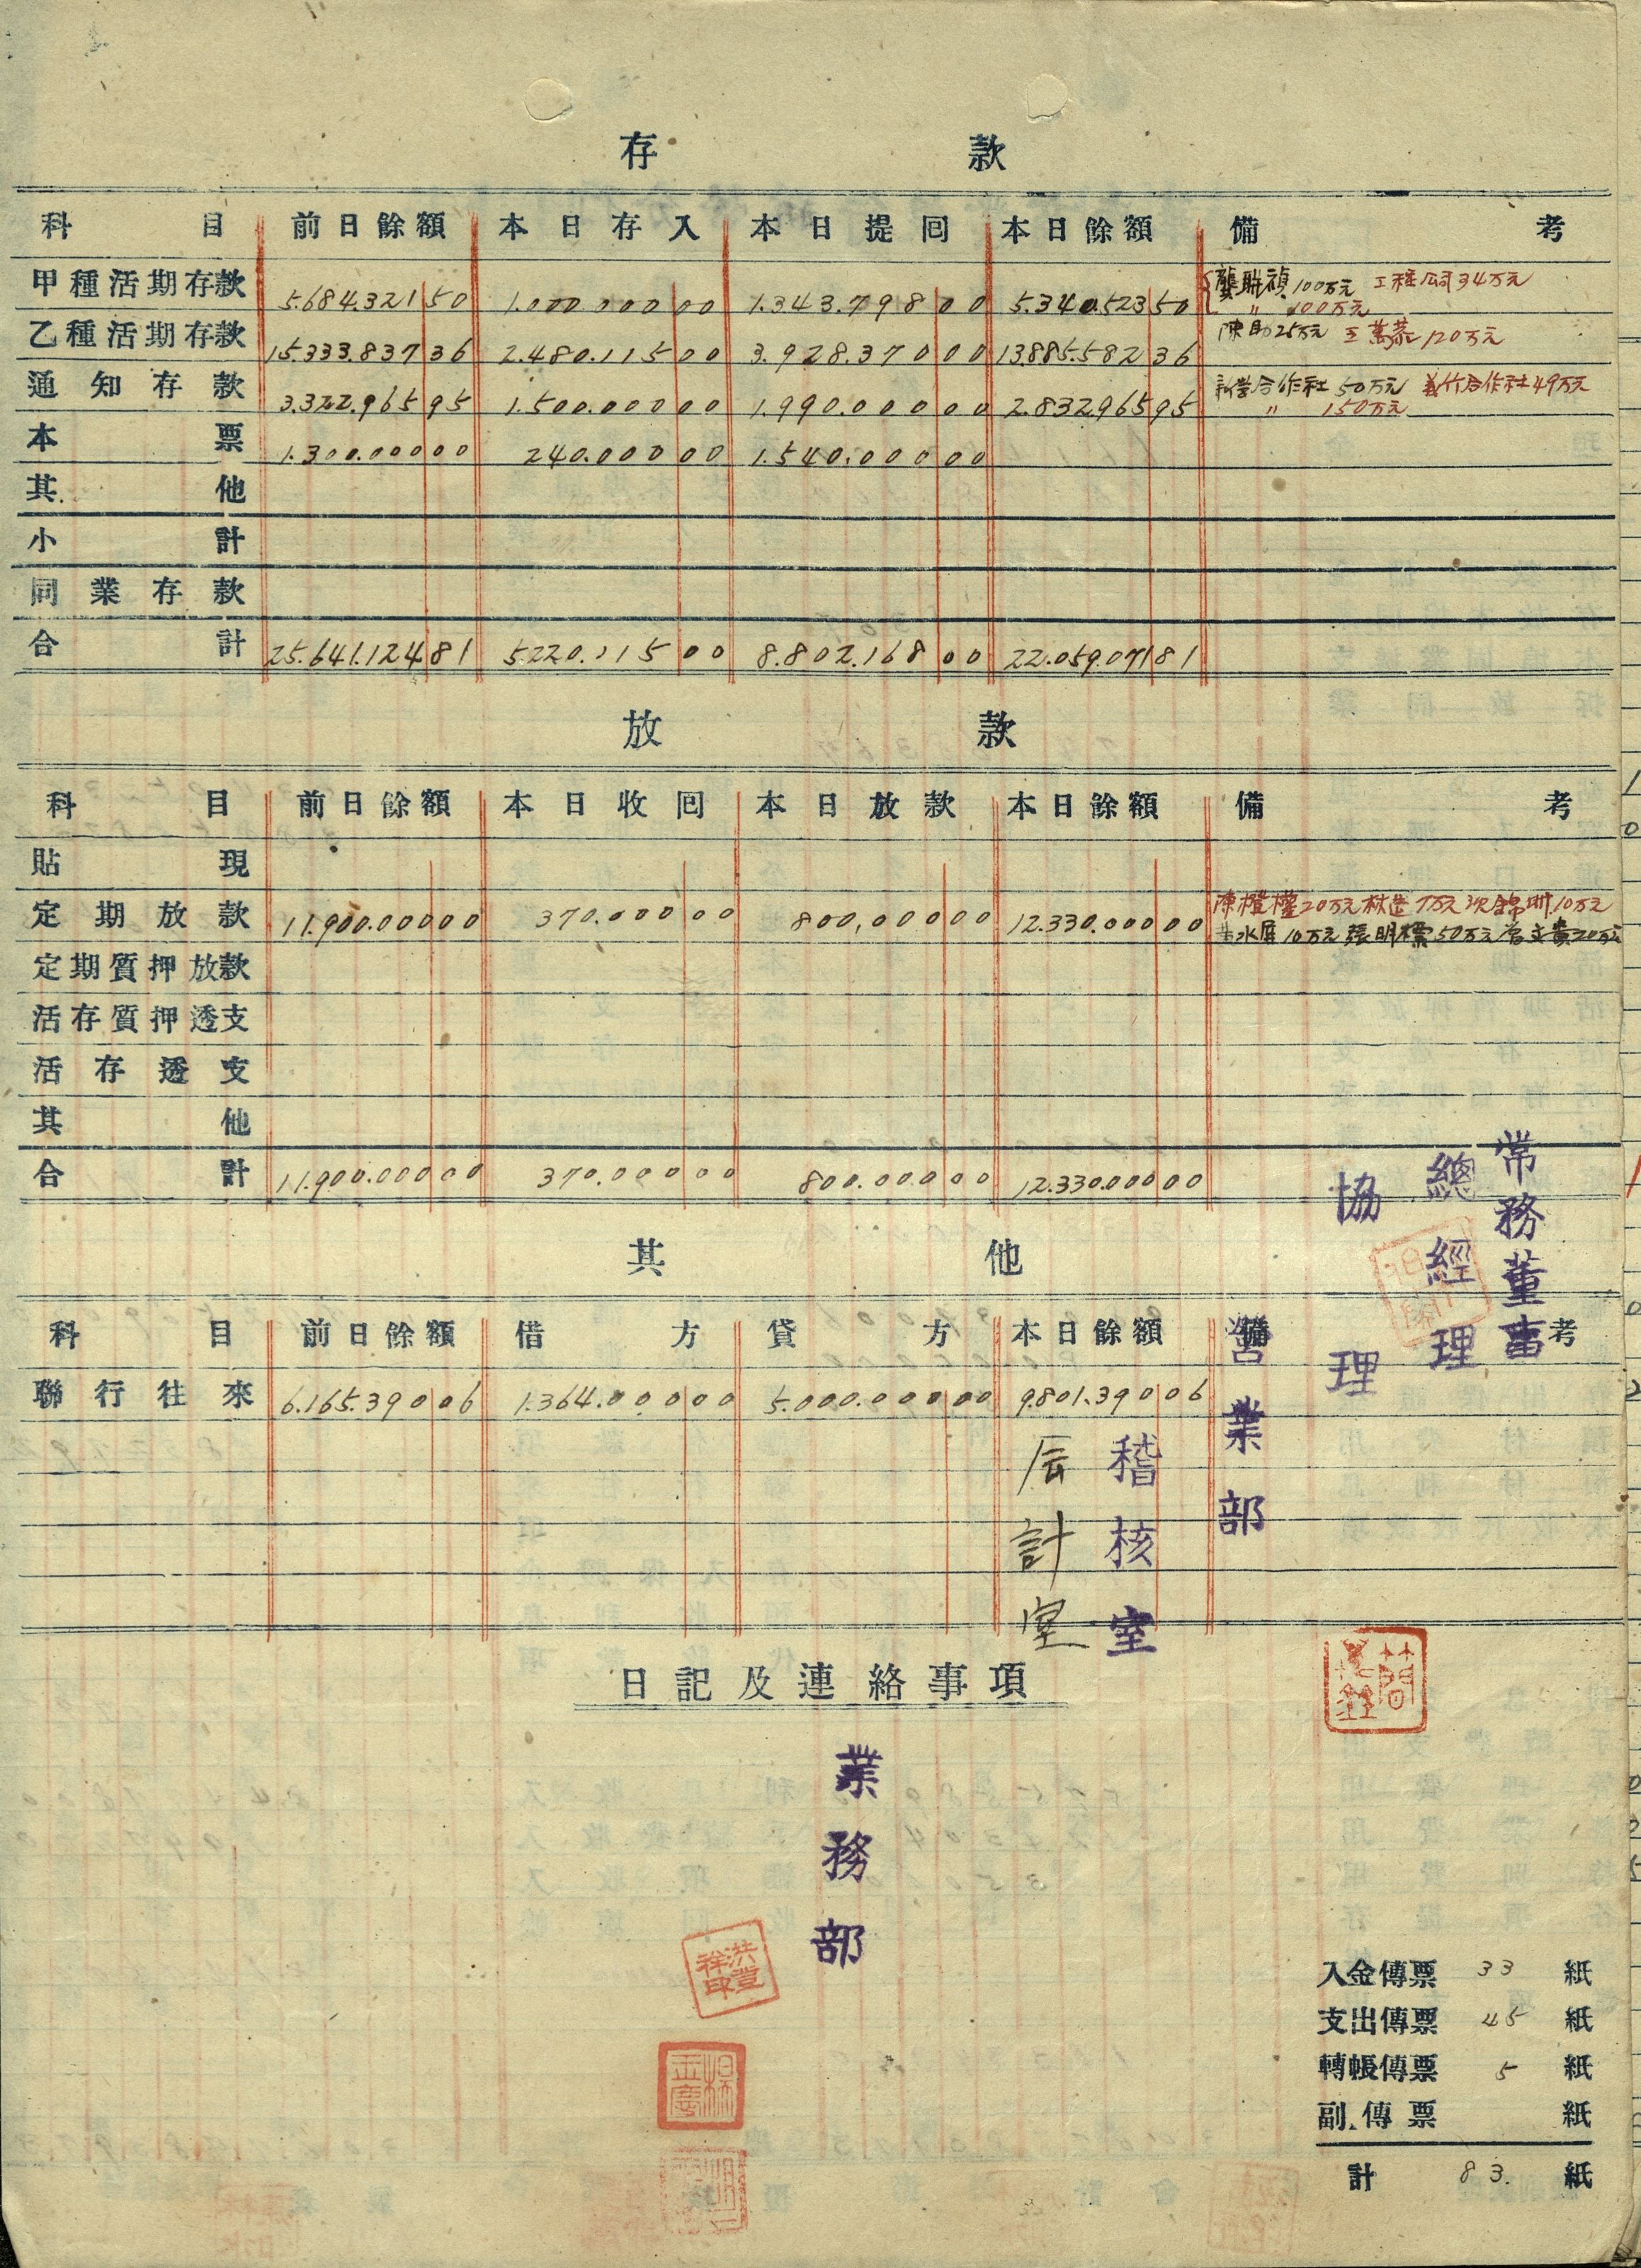 存款
科目 前日餘額 本日存入 本日提回 本日餘額 備考
甲種活期存款 5.684.321 50 1.000.000 00 1.343.798 00 5.340.523 50 龔聯禎100万元 工程公司34万元
〃 100万元
乙種活期存款 15.333.837 36 2.480.115 00 3.928.370 00 13.885.582 36 陳助25万元 王萬恭120万元
通知存款 3.322.965 95 1.500.000 00 1.990.000 00 2.832.965 95 合作社50万元 義竹合作社49万元
〃 150万元
本票 1.300.000 00 240.000 00 1.540.000 00
其他
小計
同業存款
合計 25.641.124 81 5.220.115 00 8.802.168 00 22.059.071 81
放款
科目 前日餘額 本日收回 本日放款 本日餘額 備考
貼現
定期放款 11.900.000 00 370.000 00 800,000 00 12.330.000 00 陳櫂20万元 林 7万元 10万元
水 10万元 張明標50万元 文貴20万元
定期質押放款
活存質押透支
活存透支
其他
合計 11.900.000 00 370.000 00 800.000 00 12.330.000 00
常務董事
總經理
協理
其他
科目 前日餘額 借方 貸方 本日餘額 備考
聯行往來 6.165.390 06 1.364.000 00 5.000.000 00 9.801.390 06
營業部
稽核室
計室
日記及連絡事項
業務部
洪登祥印
入金傳票 33 紙
支出傳票 45 紙
轉帳傳票 5 紙
副傳票 紙
計 83. 紙